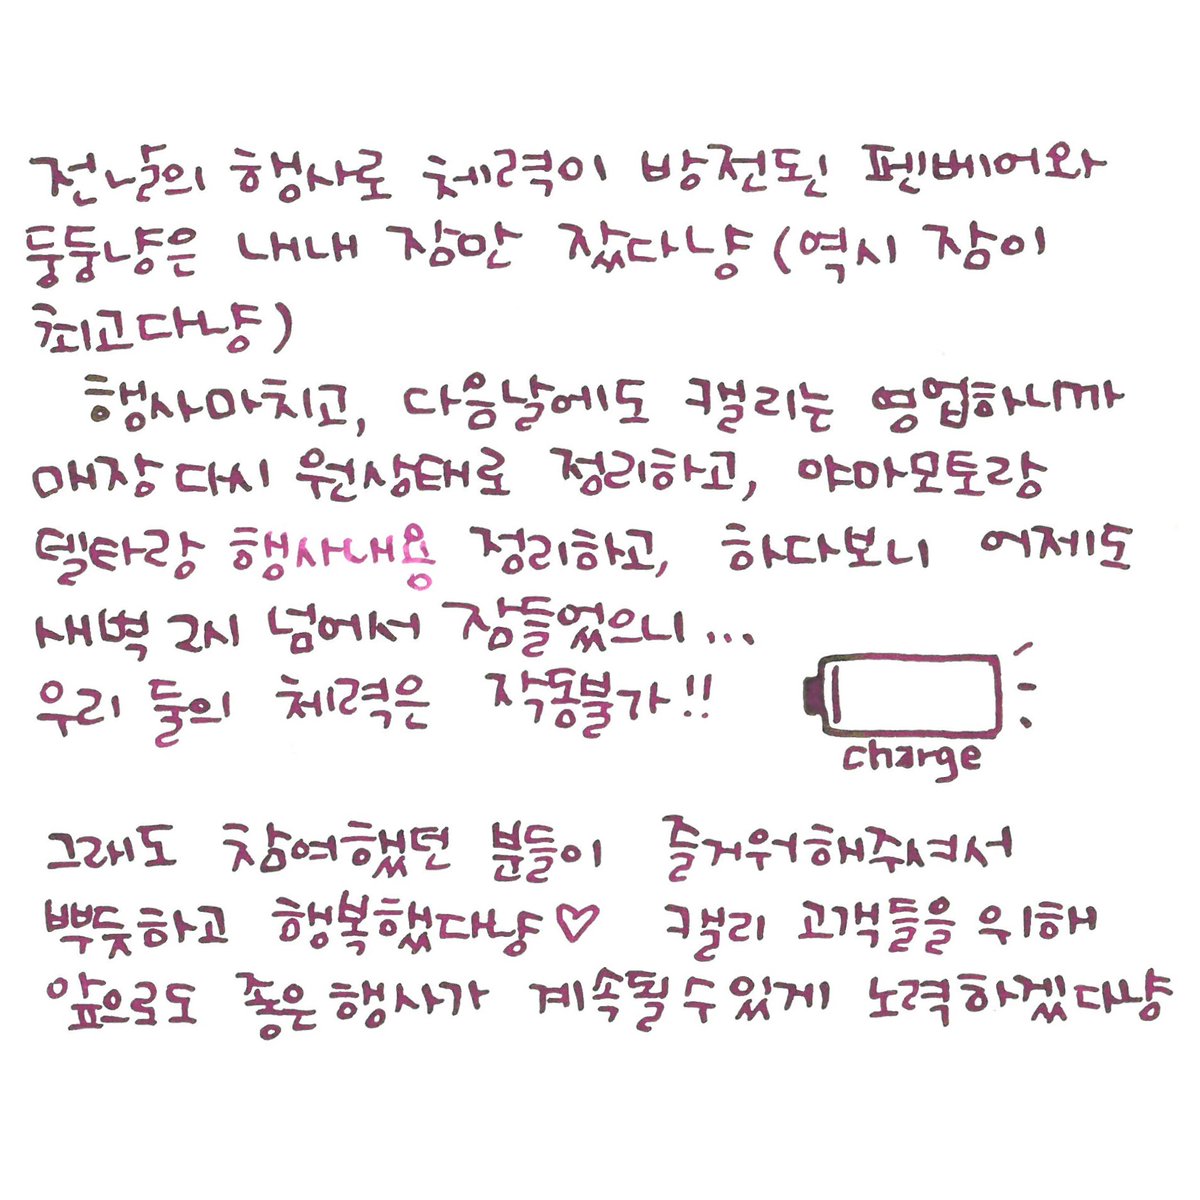 전날의 행사로 체력이 방전된 펜베어와
뚱뚱냥은 내내 잠만 잤다냥 (역시 잠이
최고다냥)
행사마치고, 다음날에도 캘리는 영업하니까
매장 다시 원상태로 정리하고, 야마모토랑
델타랑 행사내용 정리하고, 하다보니 어제도
새벽 2시 넘어서 잠들었으니...
우리 둘의 체력은 작동불가!!
charge
그래도 참여했던 분들이 즐거워해주셔서
뿌듯하고 행복했다냥♡ 캘리 고객들을 위해
앞으로도 좋은 행사가 계속될 수 있게 노력하겠다냥